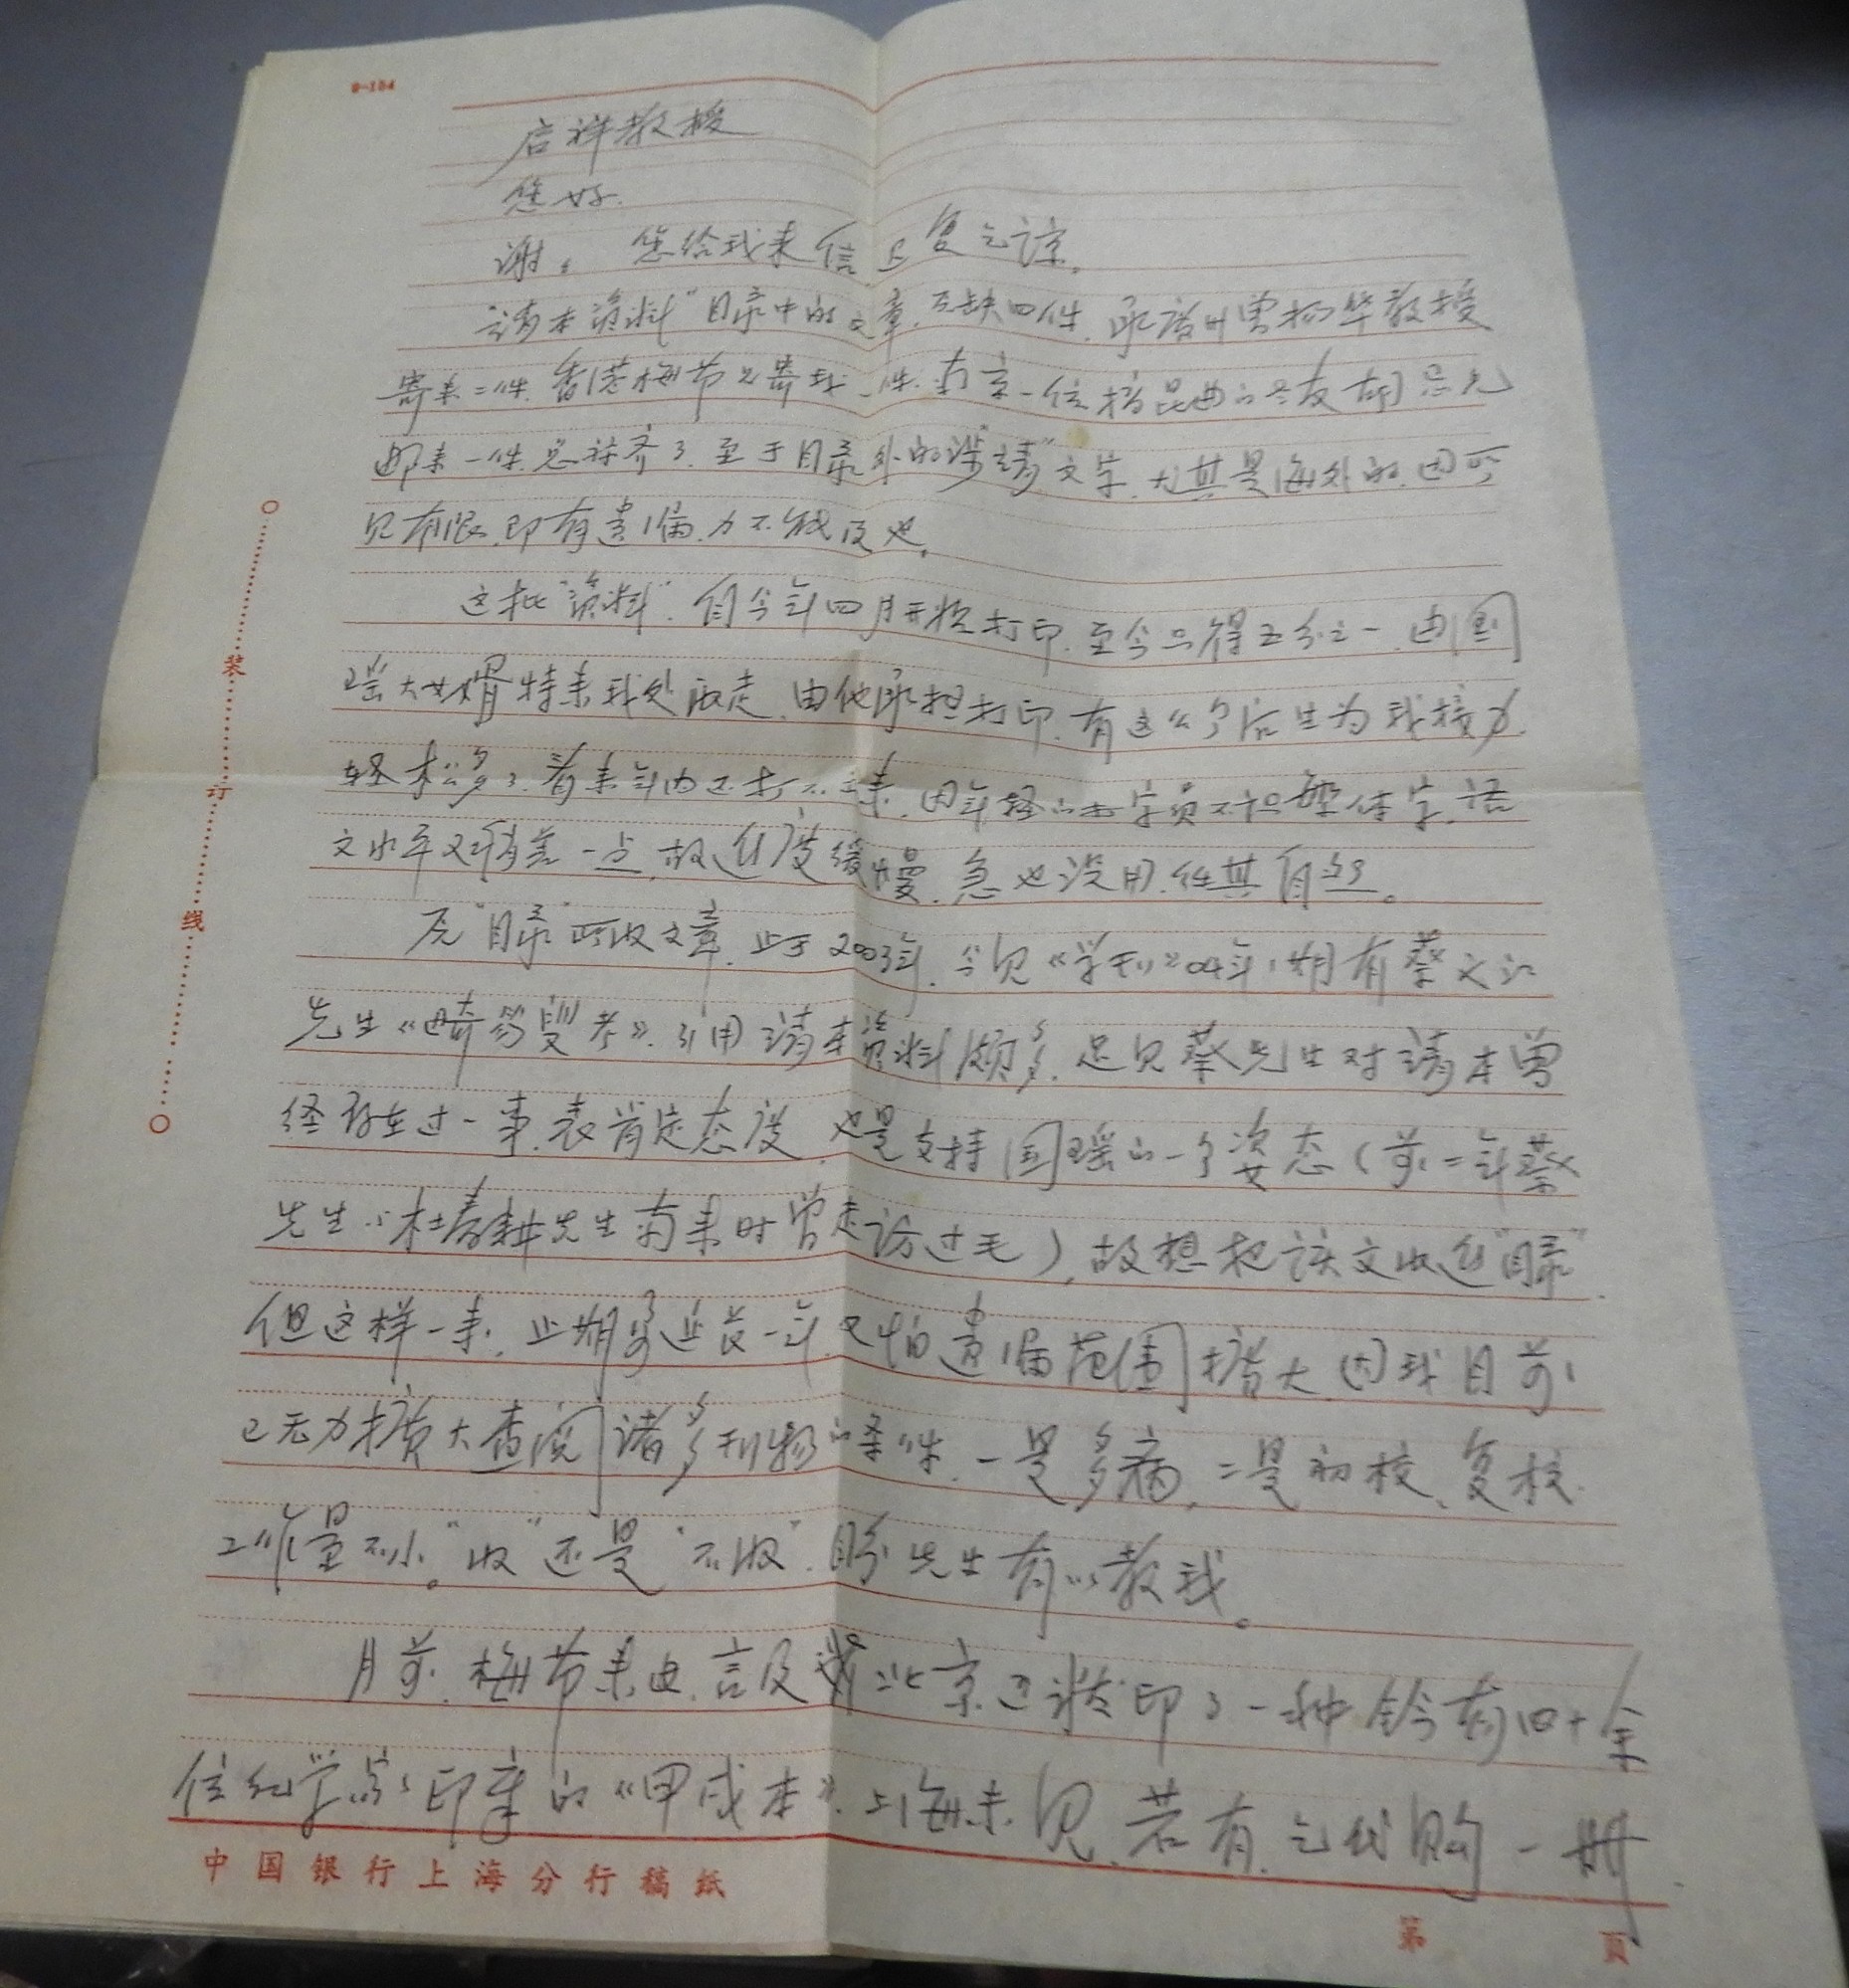 9-154
启祥教授
您好.
谢々 您给我来信 迟复乞谅。
"靖本资料"目录中的文章,尚缺四件,承苏州曾扬华教授
寄来二件,香港梅节兄寄我一件,南京一位搞昆曲的学友胡忌兄
邮来一件,总算齐了.至于目录外的涉"靖"文字,尤其是海外的,因所
见有限,即有遗漏,力不能及也。
这批"资料",自今年四月开始打印,至今只得五分之一,由国
瑶大女婿特来我处取走,由他承担打印,有这么个后生为我接力,
轻松多了.看来年内还打不出来,因年轻的打字员不识繁体字,语
文水平又稍差一点,故进度缓慢,急也没用,任其自然。
凡"目录"所收文章,止于2003年,今见《学刊》04年1期有蔡义江
先生《畸笏叟考》,引用靖本资料颇多,足见蔡先生对靖本曾
经存在过一事,表肯定态度,也是支持国瑶的一个姿态(前二年蔡
先生与杜春耕先生南来时曾走访过毛),故想把该文收进"目录",
但这样一来,止期要延长一年,又怕遗漏范围扩大,因我目前
已无力扩大查阅诸多刊物的条件,一是多病,二是初校、复校
工作量不小。"收"还是"不收",盼先生有以教我。
月前,梅节来函,言及北京已精印了一种钤有四十余
位红学家印章的《甲戌本》,上海未见,若有,乞代购一册
装订线
中国银行上海分行稿纸
第 页